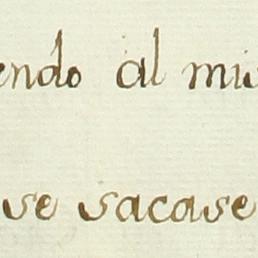 endo al mis
se sacase